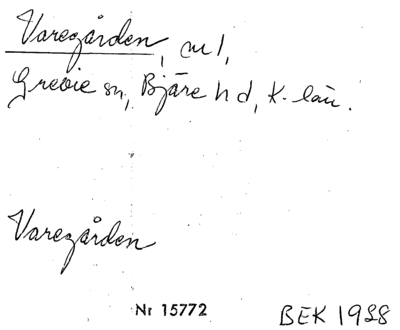 Varegården, nr 1,
Grevie sn, Bjäre hd, K. län.
Varegården
Nr 15772
BEK 1928